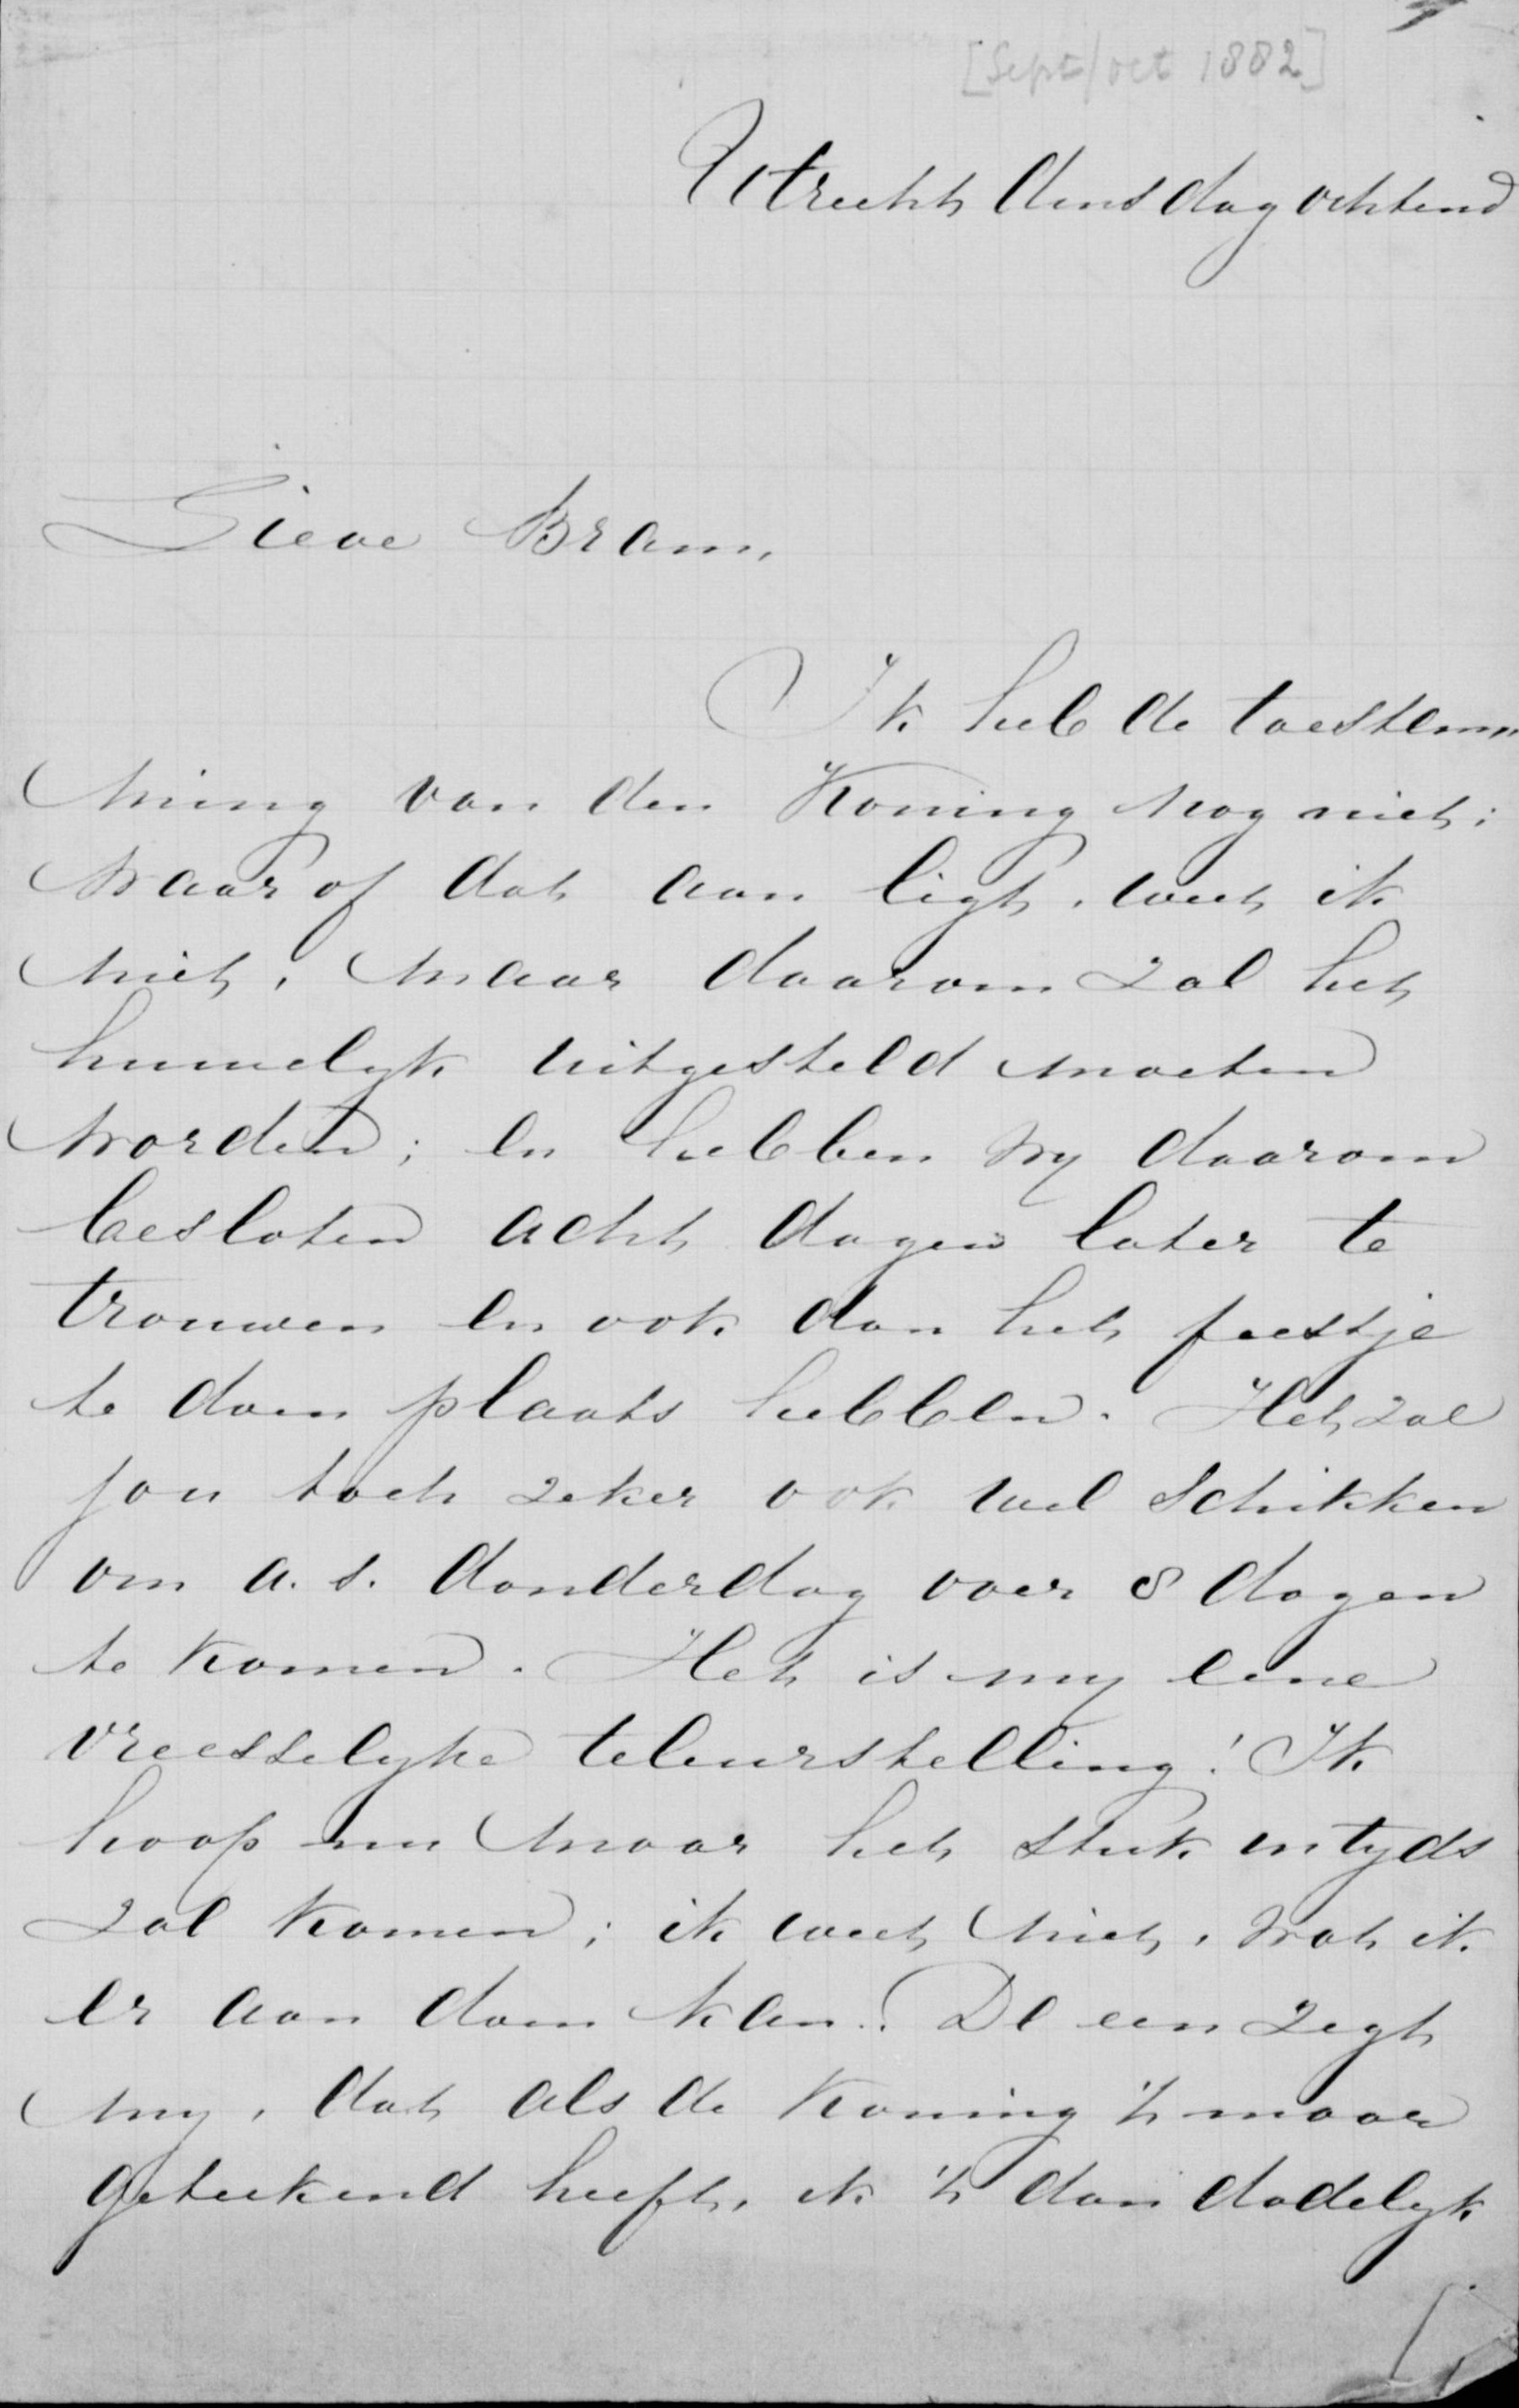 [Sept/oct 1882]
Utrecht dinsdag ochtend
Lieve Bram,
Ik heb de toestem
ming van den Koning nog niet;
waar of dat aan ligt, weet ik
niet, maar daarom zal het
huwelyk uitgesteld moeten
worden; en hebben wy daarom
besloten acht dagen later te
trouwen en ook dan het feestje
te doen plaats hebben. Het zal
jou toch zeker ook wel schikken
om a.s. donderdag over 8 dagen
te komen. Het is my eene
vreesselyke teleurstelling! Ik
hoop nu maar het stuk intyds
zal komen; ik weet niet, wat ik
er aan doen kan. De een zegt
my, dat als de Koning 't maar
geteekend heeft, ik 't dan dadelyk